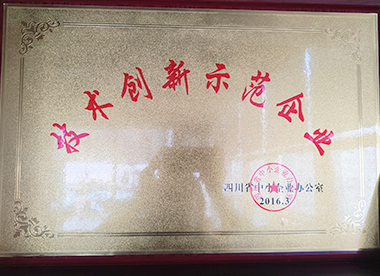 学术创新示范企业
四川省中小企业办公室
2016.3